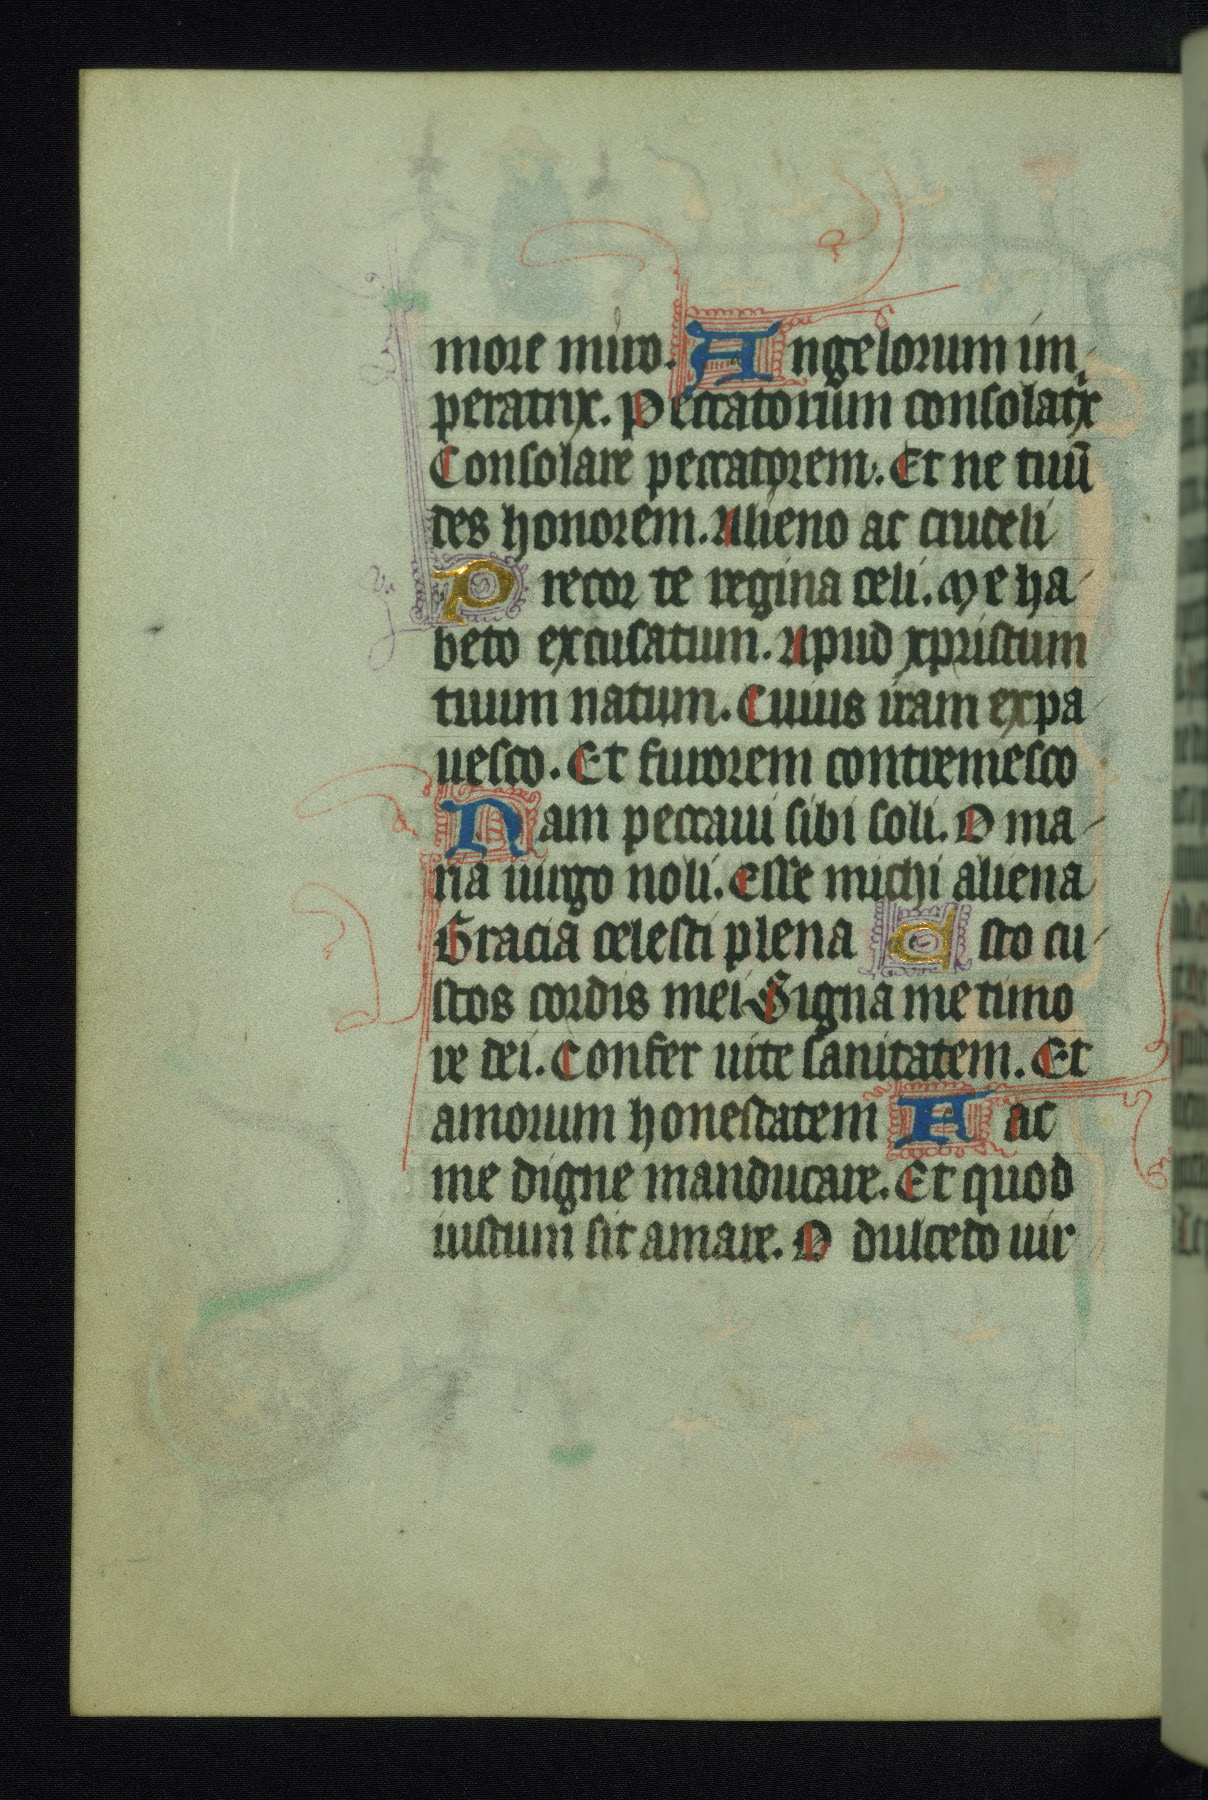 more miro. Angelorum im
peratrix. Peccatorum consolatrx
Consolare peccatorem. Et ne tuū
des honorem. Alieno ac crudeli
Precor te regina celi. Me ha
beto excusatum. Apud xpristum
tuum natum. Cuius iram expa
uesco. Et furorem contremesco
Nam peccaui sibi soli. O ma
ria uirgo noli. Esse michi aliena
Gracia celesti plena Esto cu
stos cordis mei Signa me timo
re dei. Confer uite sanitatem. Et
amorum honestatem Fac
me digne manducare. Et quod
iustum sit amare. O dulcedo uir